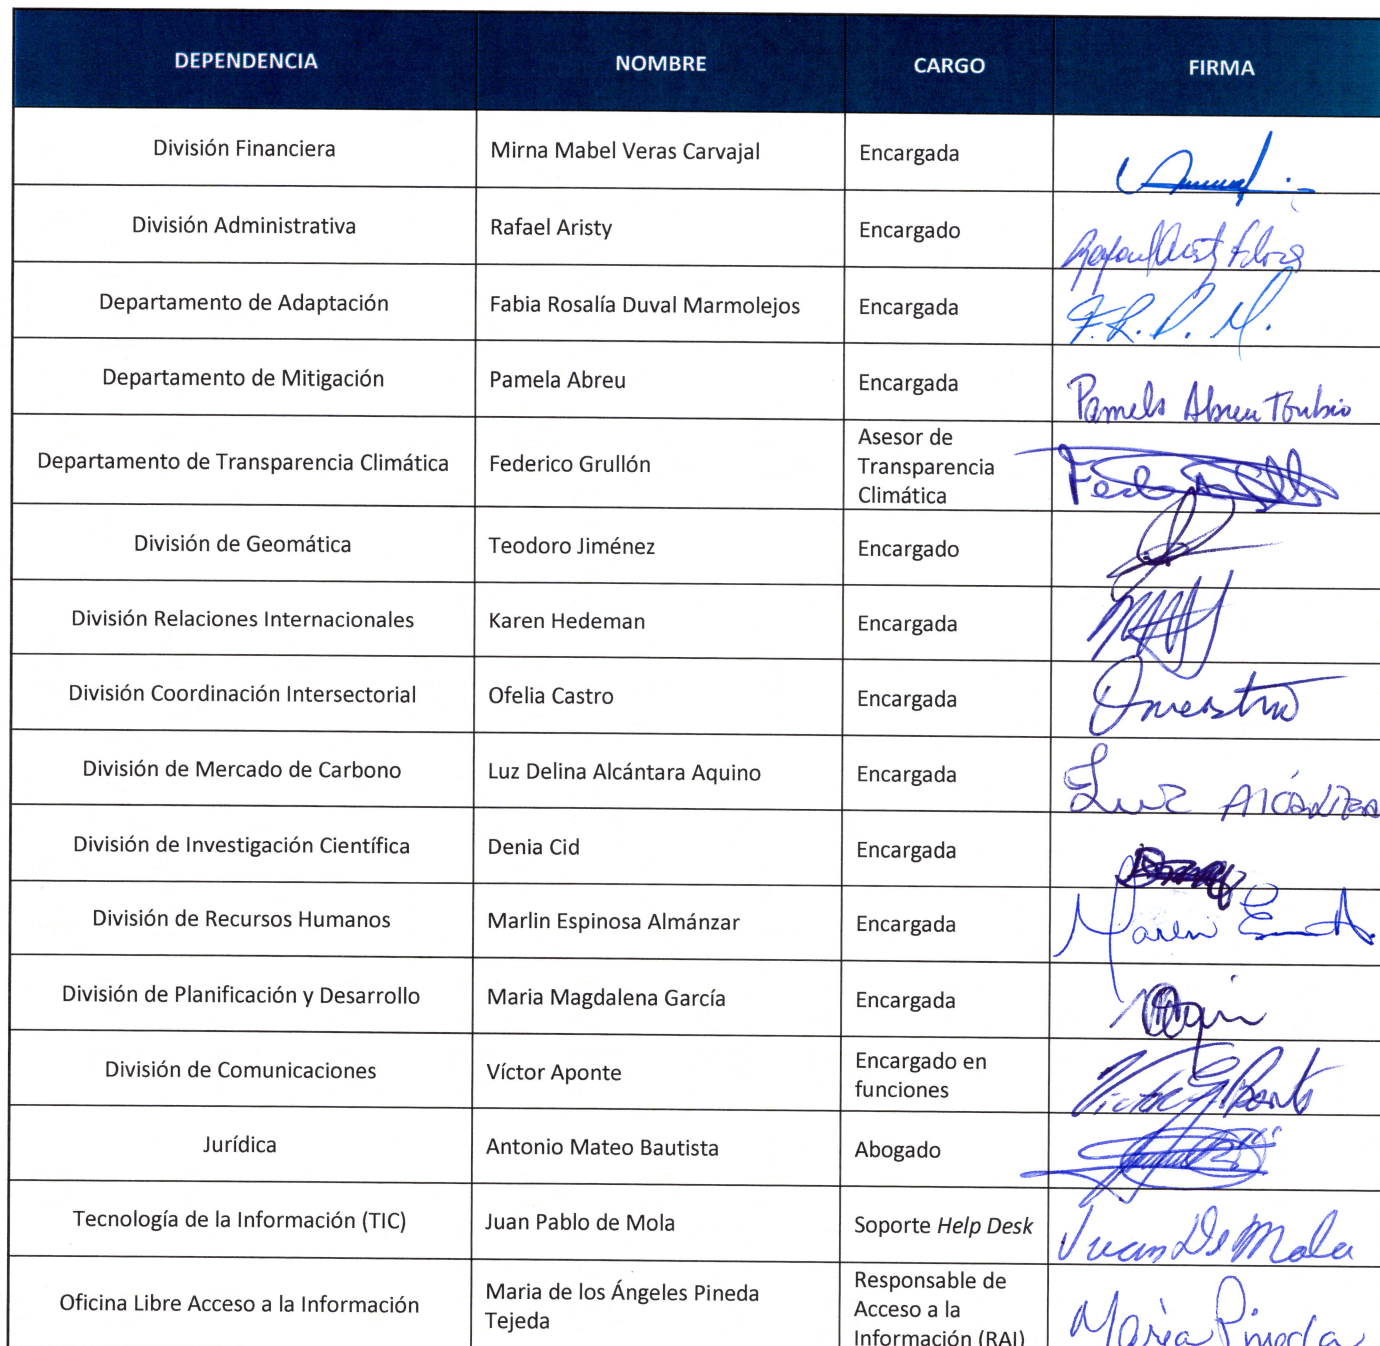 DEPENDENCIA NOMBRE CARGO FIRMA
División Financiera Mirna Mabel Veras Carvajal Encargada
División Administrativa Rafael Aristy Encargado Rafael Aristy Flores
Departamento de Adaptación Fabia Rosalía Duval Marmolejos Encargada F.R.D.M.
Departamento de Mitigación Pamela Abreu Encargada Pamela Abreu Toribio
Departamento de Transparencia Climática Federico Grullón Asesor de
Transparencia
Climática
División de Geomática Teodoro Jiménez Encargado
División Relaciones Internacionales Karen Hedeman Encargada
División Coordinación Intersectorial Ofelia Castro Encargada
División de Mercado de Carbono Luz Delina Alcántara Aquino Encargada Luz Alcántara
División de Investigación Científica Denia Cid Encargada
División de Recursos Humanos Marlin Espinosa Almánzar Encargada
División de Planificación y Desarrollo Maria Magdalena García Encargada
División de Comunicaciones Víctor Aponte Encargado en
funciones
Jurídica Antonio Mateo Bautista Abogado
Tecnología de la Información (TIC) Juan Pablo de Mola Soporte Help Desk Juan De Mola
Oficina Libre Acceso a la Información Maria de los Ángeles Pineda
Tejeda Responsable de
Acceso a la
Información (RAI) María Pineda